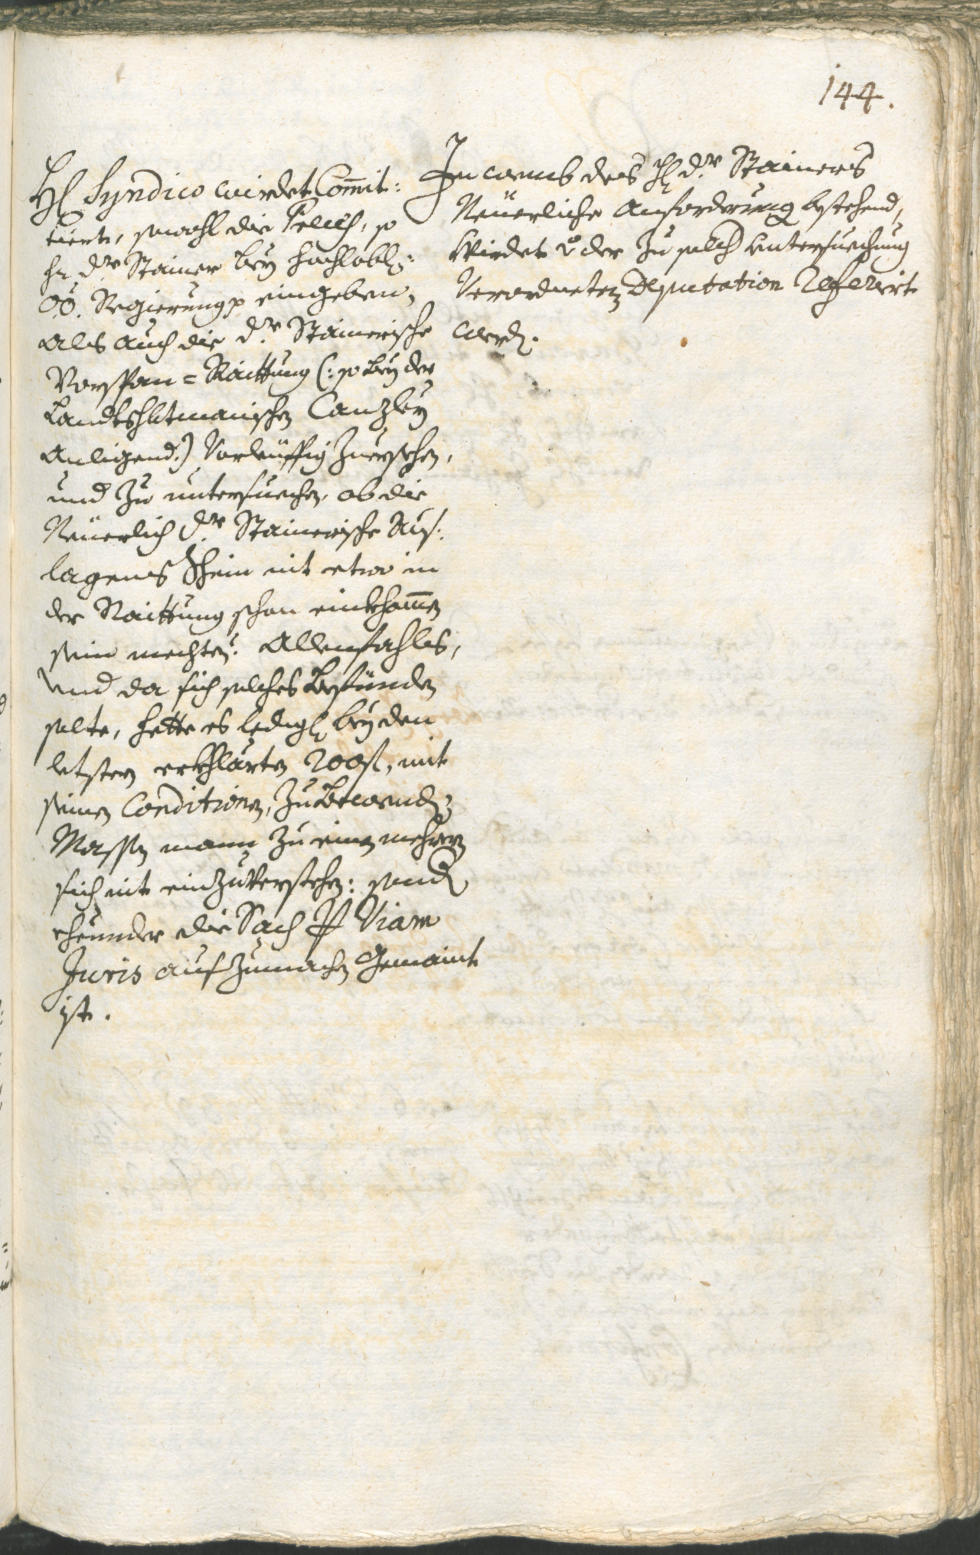 144.
Hl Syndico wirdet Commit:
tiert, sowohl die so
hr dr Stainer bey hochlobl:
OÖ. Regierung eingeben,
als auch die dr Stainerische
Vorspan=Raittung (: so bey der
Landtshbtmanischen Canzley
Anligend:) Vorleüffig Zuersehen,
und Zu untersuechen, ob die
Neüerlich dr Stainerische Aus:
lagens Schein nit etwo in
der Raittung schon einkhommen
sein mechten? Allenfahls,
und da sich solches Befünden
solte, hette es ledigl bey den
letsten erkhlärten 200 fl, mit
seinen Conditionen, Zu Bewenden;
Massen mann Zu einem mehrern
sich nit einzuverstehen: sond
ehunder die Sach P Viam
Juris aufzumachen Gemaint
ist.
In weme des Hl dr Stainers
Neüerliche Anforderung bestehend,
Wirdet der Zu solch Untersuechung
Verordneten Deputation Referirt
werden.